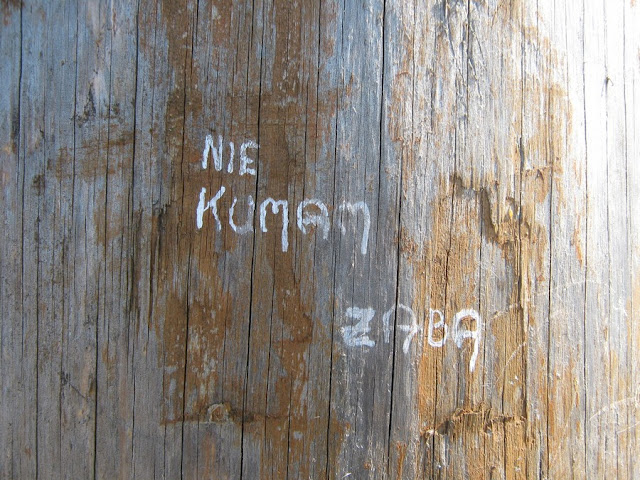 NIE
KUMAM
ZABA